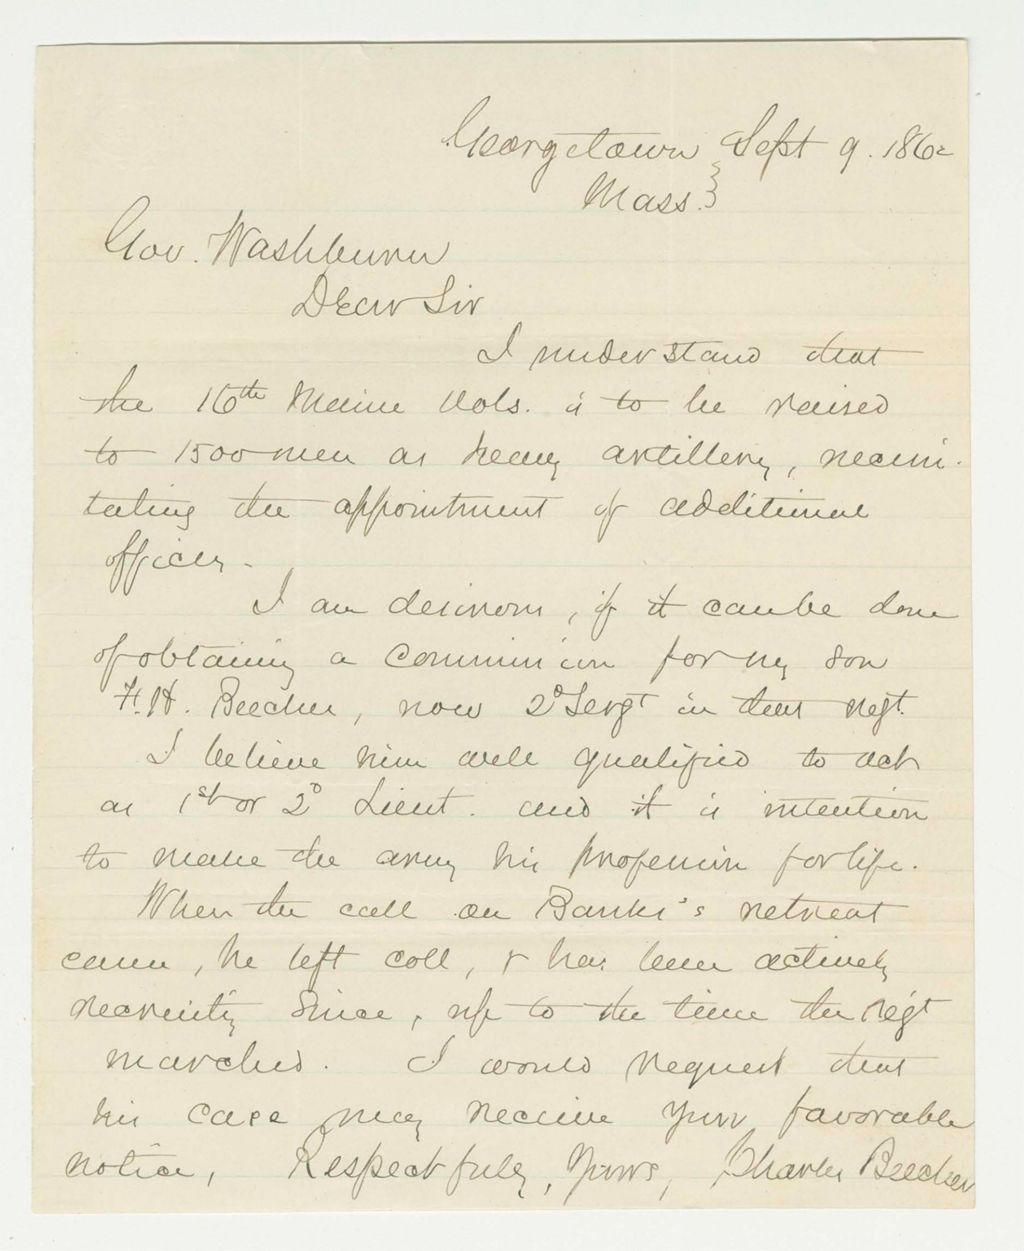 Georgetown Sept 9. 1862
Mass.}
Gov. Washburn
Dear Sir
I understand that
the 16th Maine Vols. is to be raised
to 1500 men as heavy artillery, necessi-
tating the appointment of additional
officers -
I am desirous, if it can be done
of obtaining a commission for my son
F. H. Beecher, now 2d Sergt in that regt.
I believe him well qualified to act
as 1st or 2d Lieut. and it is intention
to make the army his profession for life.
When the call on Banks's retreat
came, he left coll, & has been actively
recruiting since, up to the time the regt
marched. I would request that
his case may receive your favorable
notice, Respectfully, Yours, Charles Beecher